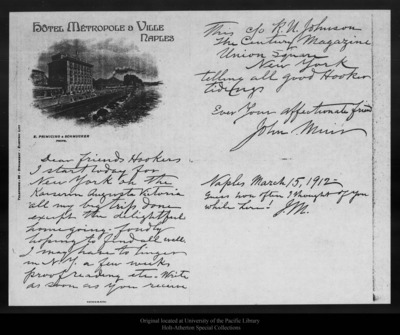 HÔTEL MÉTROPOLE & VILLE
NAPLES
Dear friends Hookers
I start today for
New York on the
Kaiserin Augusta Victoria
all my big trip done
except the delightful
home going. fondly
hoping to find all well.
I may have to linger
in N.Y. a few weeks
proof reading etc. Write
as soon as you receive
This c/o R. U. Johnson
The Century Magazine
Union Square
New York
telling all good Hooker
tidings
Ever Your affectionate friend
John Muir
Naples March 15, 1912
Guess how often I thought of you
while here! J.M.
Original located at University of the Pacific Library
Holt-Atherton Special Collections